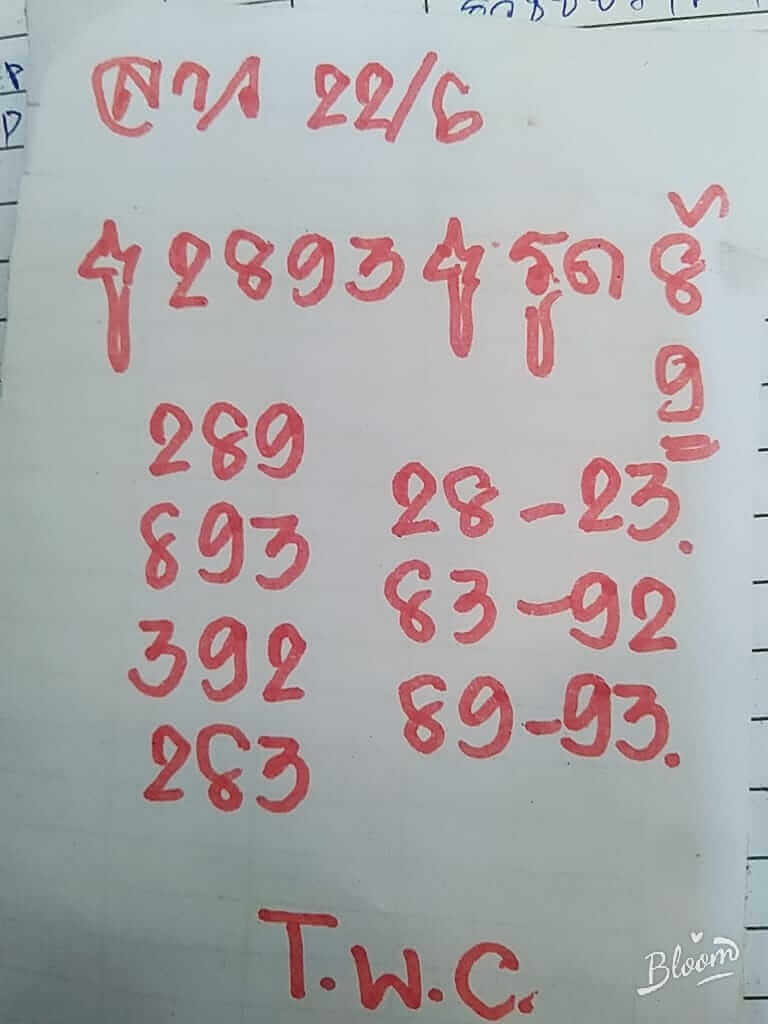 ลาว 22/6
2893 รูด 8
9
289
893
392
283
28-23.
83-92
89-93.
T.W.C.
Bloom